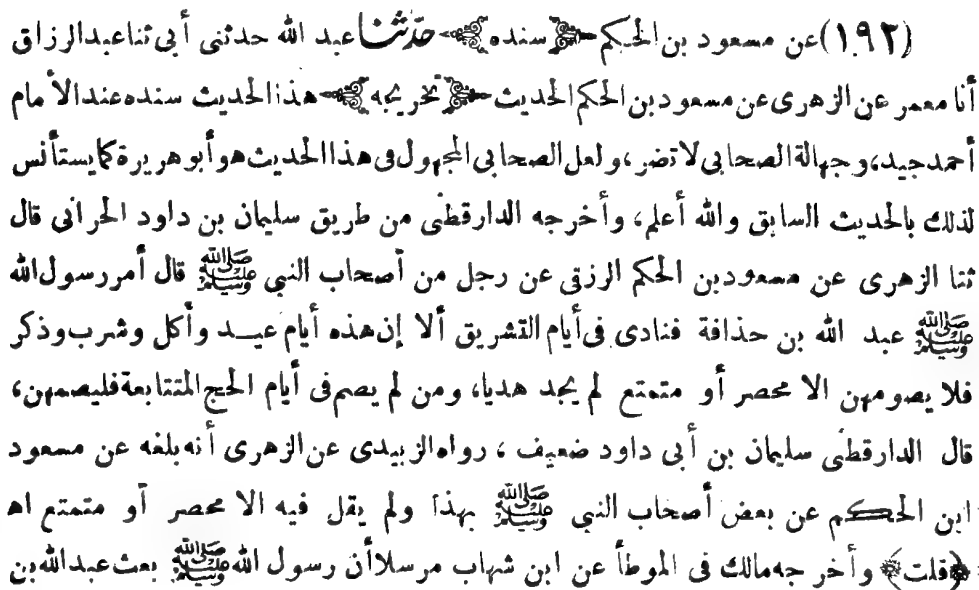 (١٩٢) عن مسعود بن الحكم ﴿سنده﴾ حدثنا عبد الله حدثنى أبى ثنا عبد الرزاق
أنا معمر عن الزهرى عن مسعود بن الحكم الحديث ﴿تخريجه﴾ هذا الحديث سنده عند الأمام
أحمد جيد، وجهالة الصحابى لا تضر، ولعل الصحابى المجهول فى هذا الحديث هو أبو هريرة كما يستأنس
لذلك بالحديث السابق والله أعلم، وأخرجه الدارقطنى من طريق سليمان بن داود الحرانى قال
ثنا الزهرى عن مسعود بن الحكم الرزقى عن رجل من أصحاب النبى ﷺ قال أمر رسول الله
ﷺ عبد الله بن حذافة فنادى فى أيام التشريق ألا إن هذه أيام عيد وأكل وشرب وذكر
فلا يصومهن الا محصر أو متمتع لم يجد هديا، ومن لم يصم فى أيام الحج المتتابعة فليصمهن،
قال الدارقطنى سليمان بن أبى داود ضعيف، رواه الزبيدى عن الزهرى أنه بلغه عن مسعود
ابن الحكم عن بعض أصحاب النبى ﷺ بهذا ولم يقل فيه الا محصر أو متمتع اه
﴿قلت﴾ وأخرجه مالك فى الموطأ عن ابن شهاب مرسلا أن رسول الله ﷺ بعث عبد الله بن